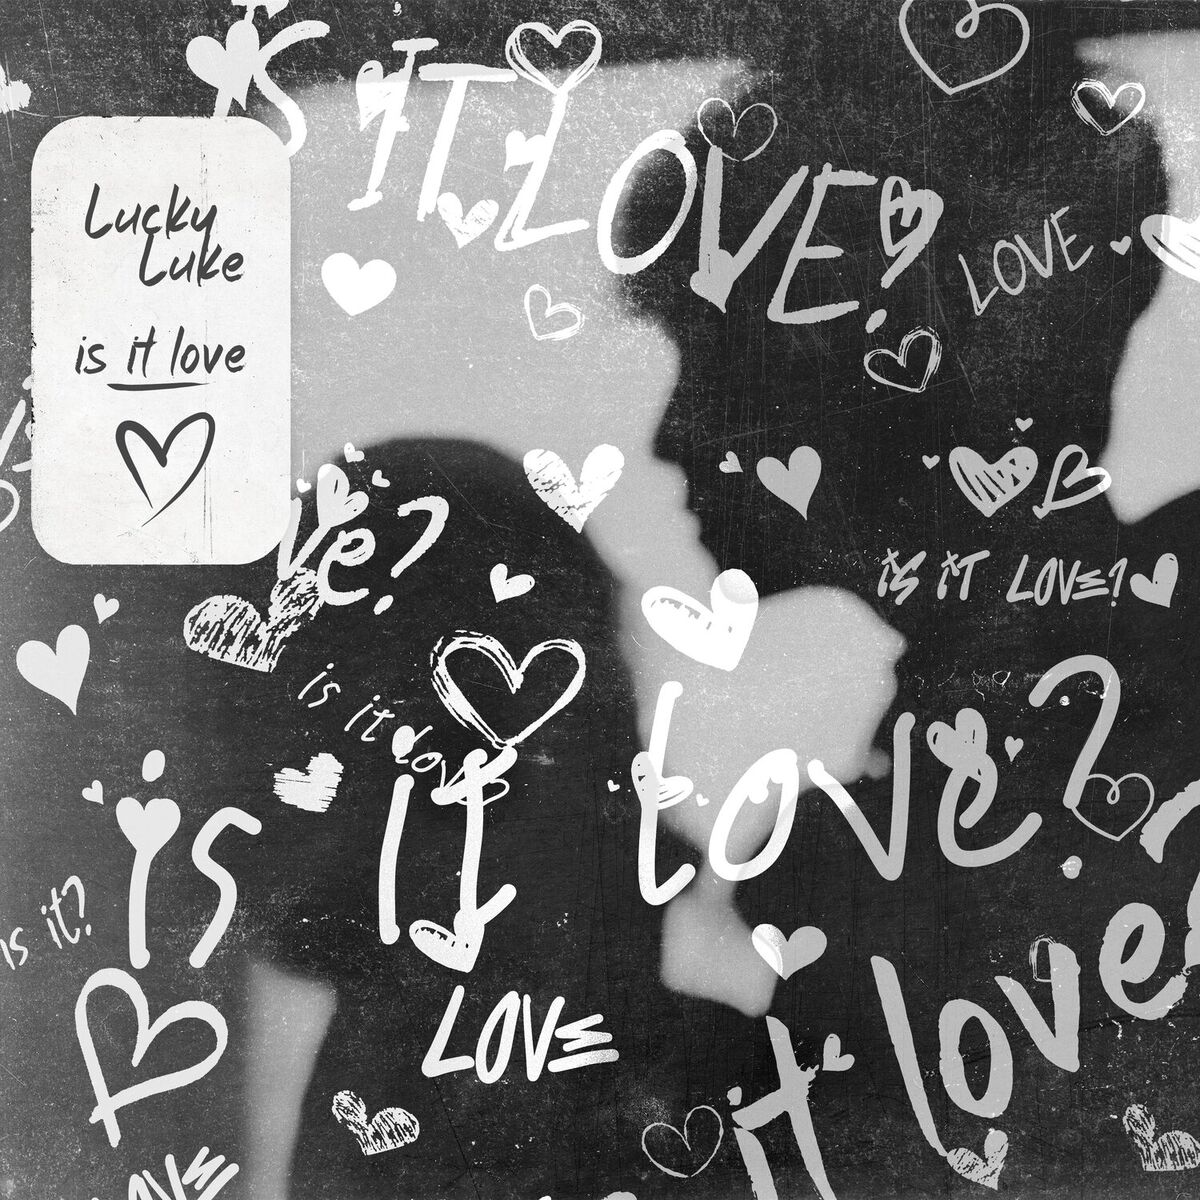 is
IT LOVE?
LOVE
Lucky
Luke
is it love
ve?
is it LOVE?
is it love
is it love?
is it?
it love
LOVE
LOVE